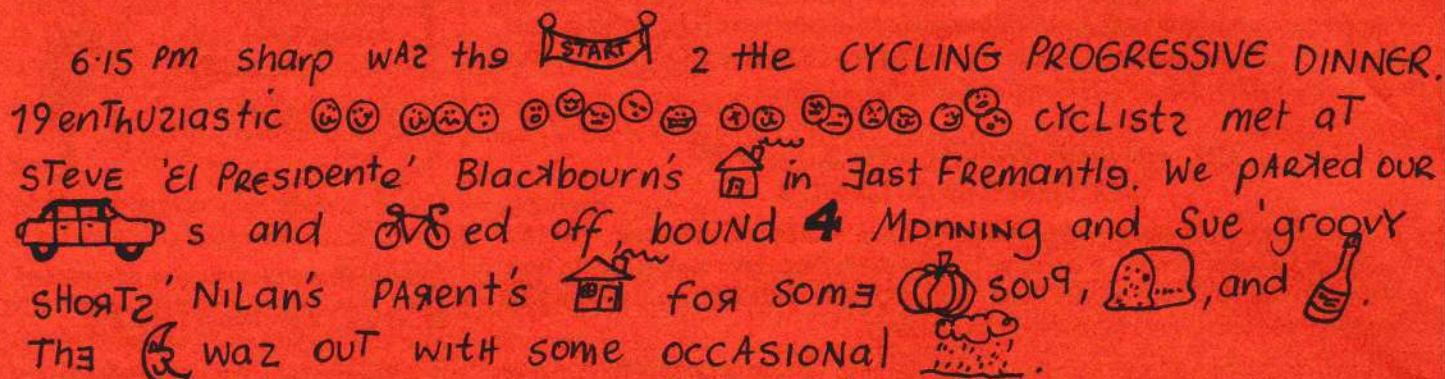 6.15 PM sharp wAz the START 2 tHe CYCLING PROGRESSIVE DINNER.
19 enThuziastic cYcLists met aT
STeVE 'El PResIDente' Blackbourn's in East FRemantle. We pARked ouR
s and ed off, bouNd 4 MDnNINg and Sue 'groovY
SHoRTz' NiLan's PARent's foR SomE soup, , and .
ThE waz ouT witH some OCCASIONal .